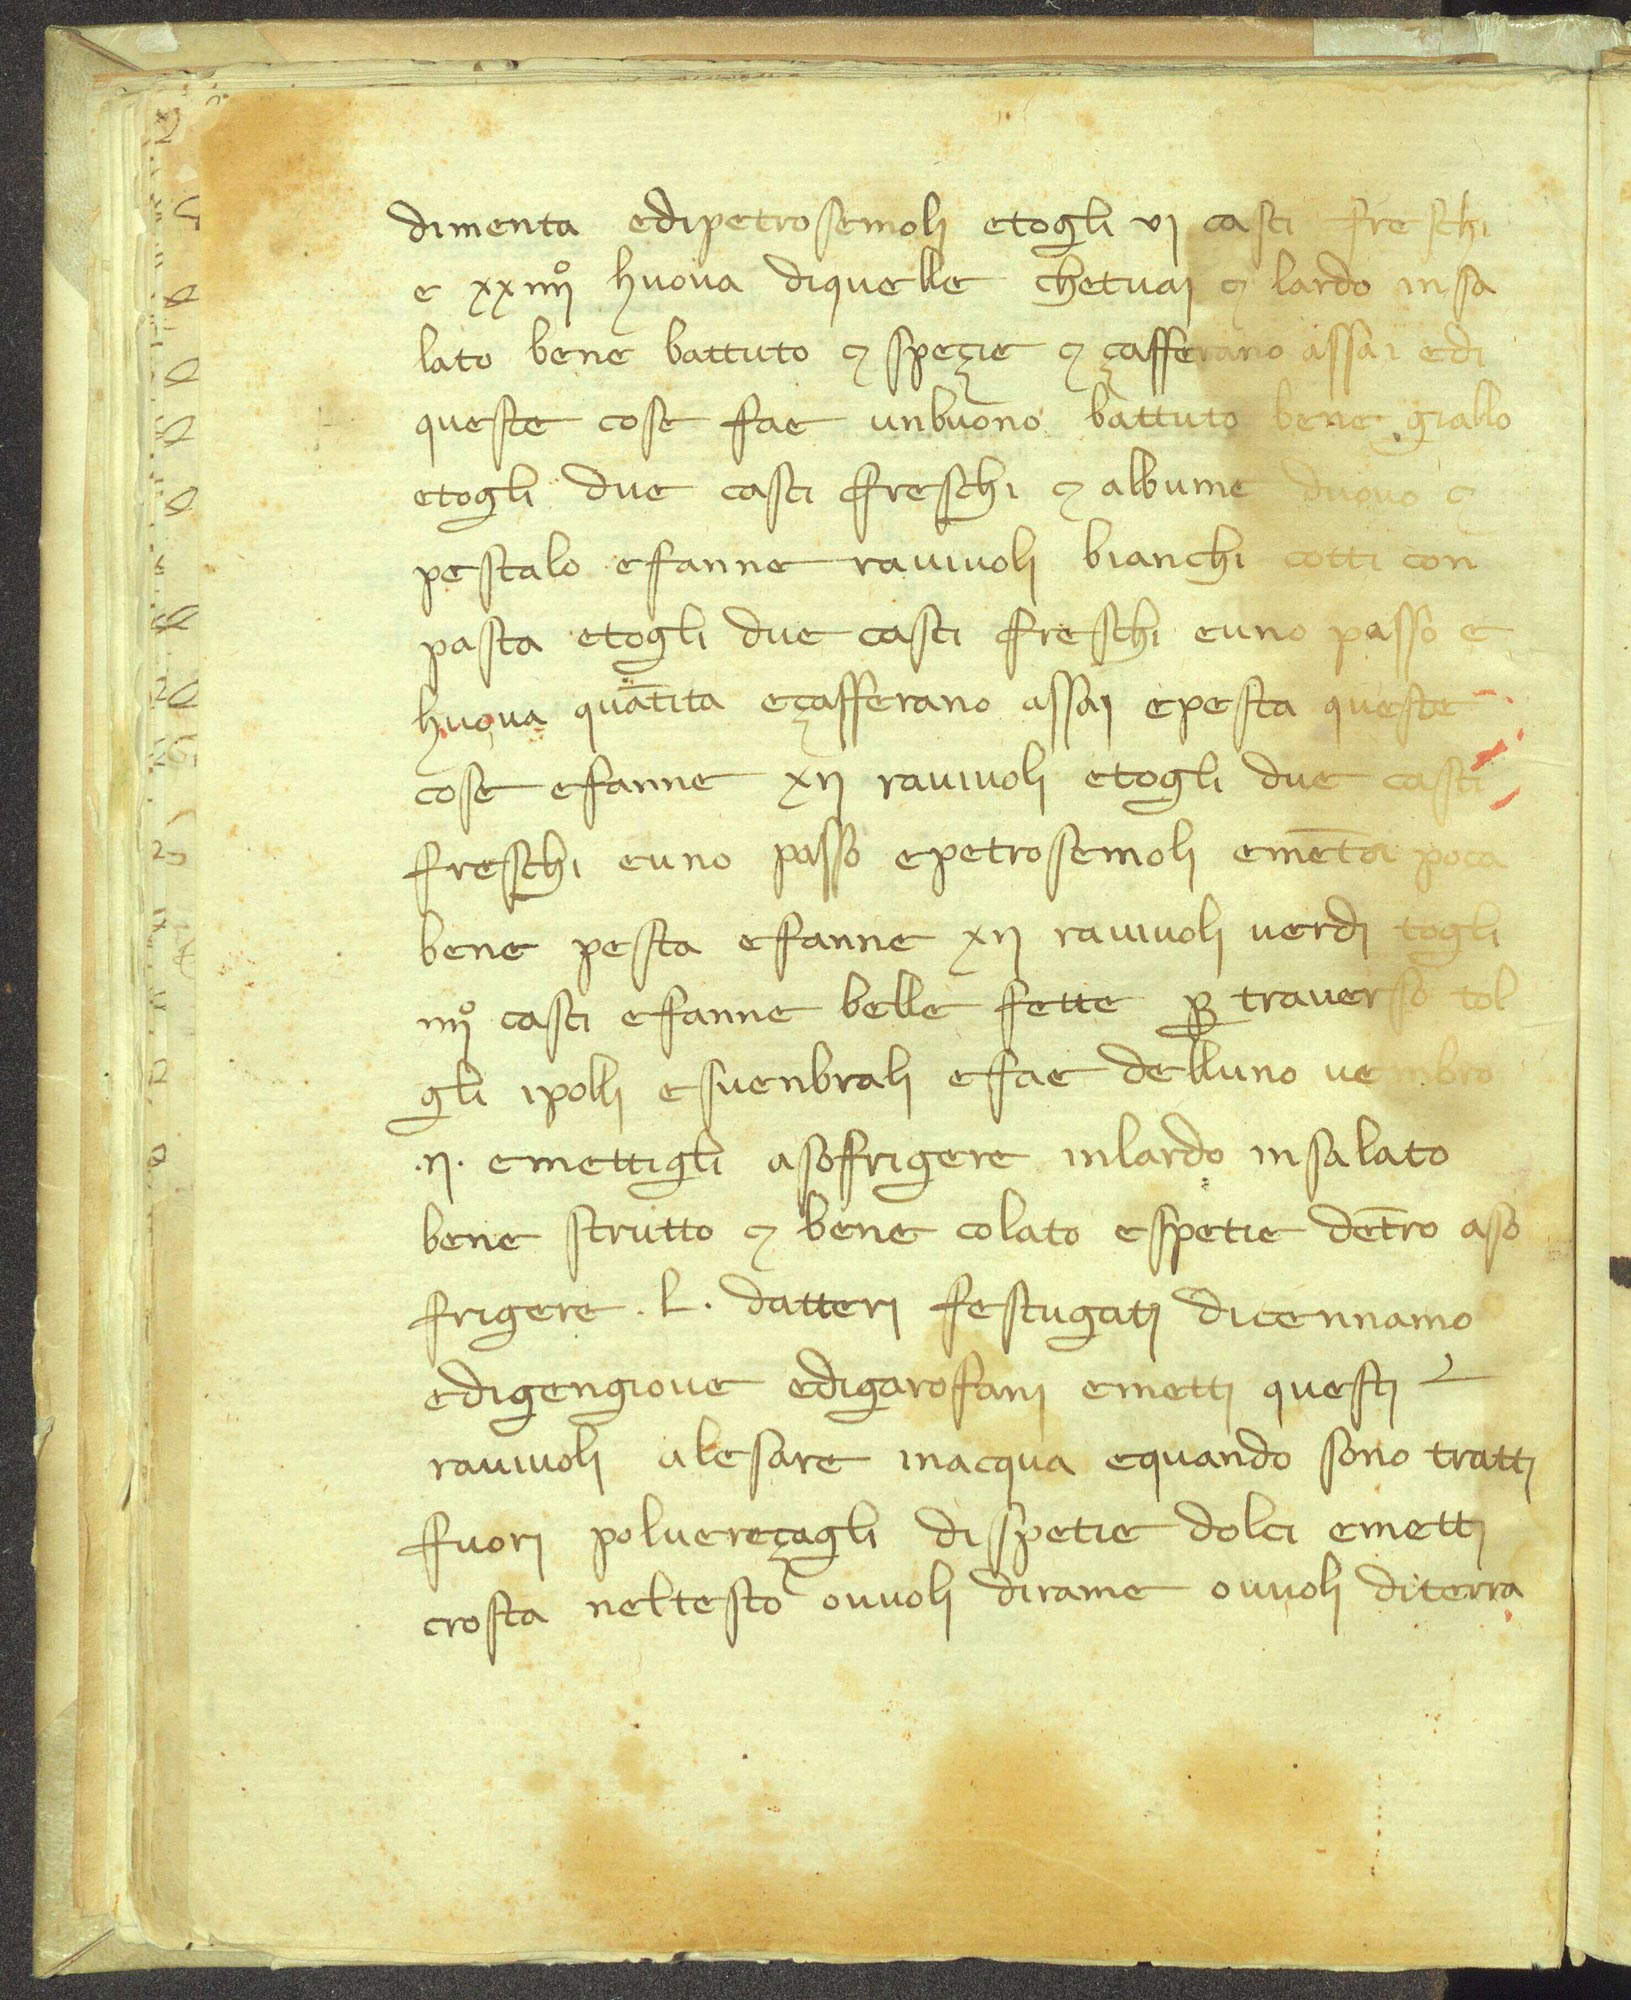 dimenta edipetrosemoli etogli vj casci freschi
e xxiiij° huova diquelle chetuaj ⁊ lardo insa
lato bene battuto ⁊ speçie ⁊ çafferano assai edi
queste cose fae unbuono battuto bene giallo
etogli due casci freschi ⁊ albume duovo ⁊
pestalo efanne raviuoli bianchi cotti con
pasta etogli due casci freschi euno passo e
huova quātita eçafferano assaj epesta queste
cose efanne xij raviuoli etogli due casci
freschi euno passo epetrosemoli emēta poca
bene pesta efanne xij raviuoli verdi togli
iiij° casci efanne belle fette ꝑ traverso tol
gli ipolli esvenbralj efae delluno vembro
.ij. emettigli asofrigere inlardo insalato
bene strutto ⁊ bene colato espetie dētro aso
frigere .L. datterj festugatj dicennamo
edigengiove edigarofanj emettj questj
raviuolj alesare inacqua equando sono trattj
fuorj polvereçagli dispetie dolci emettj
crosta neltesto ovvolj dirame ovvolj diterra